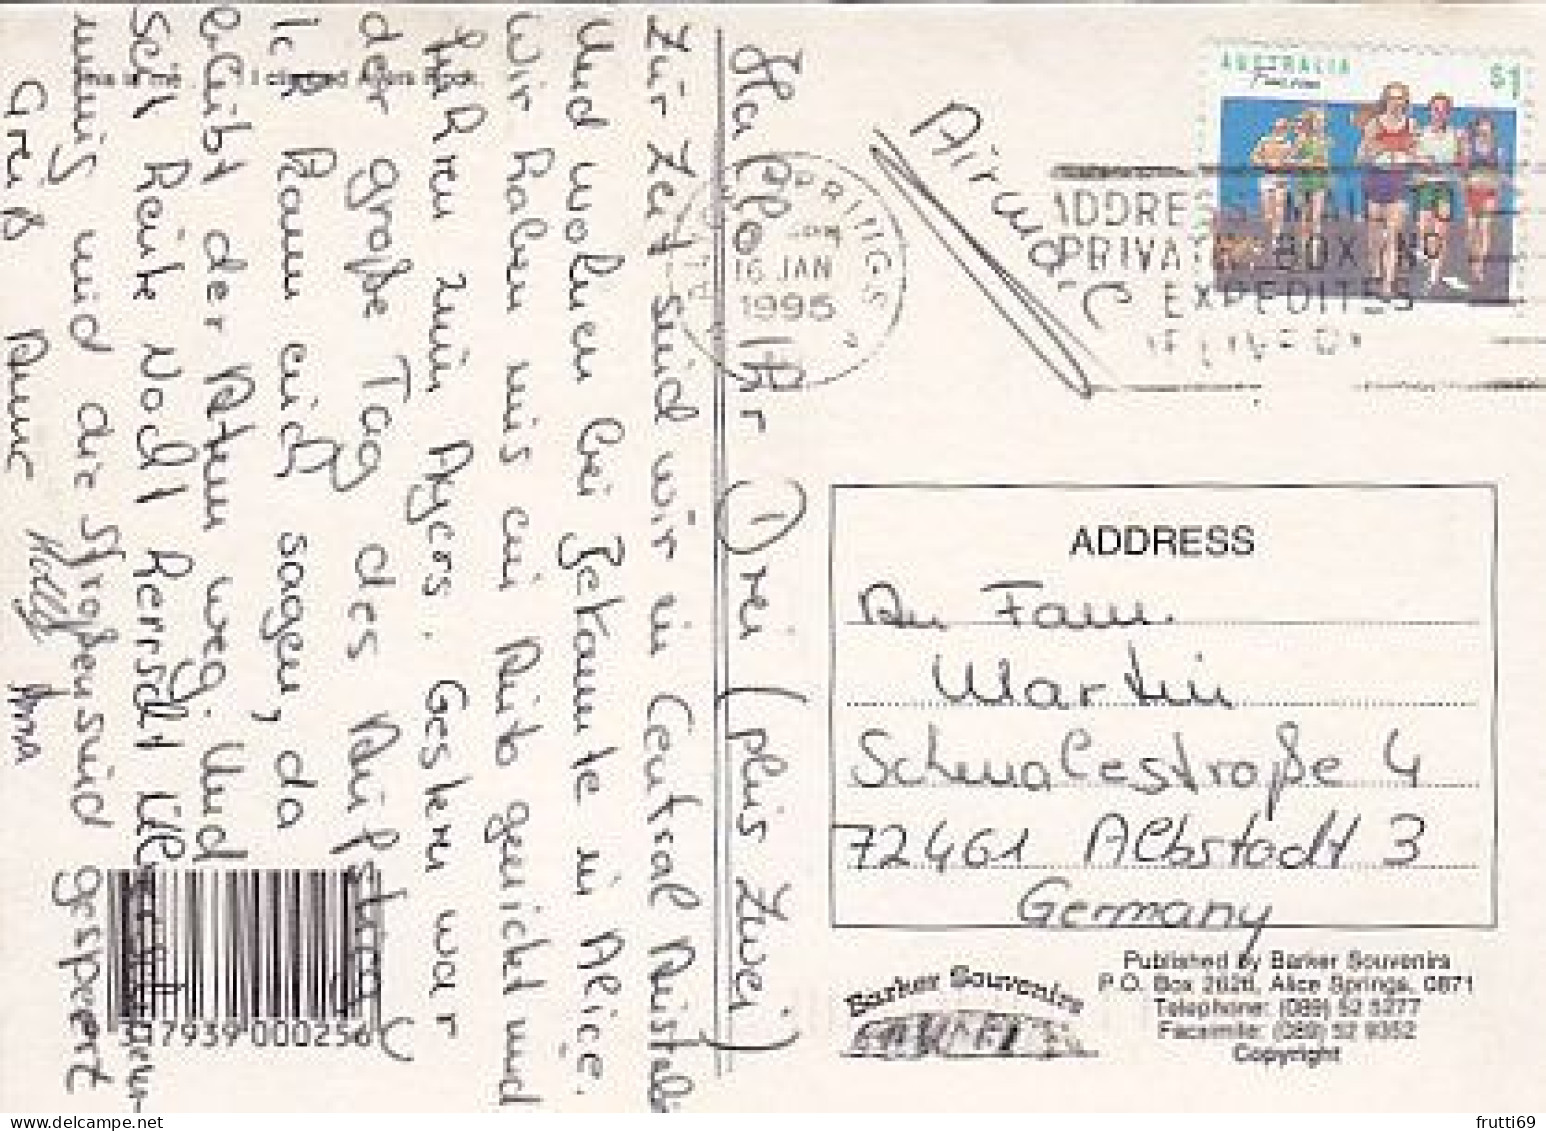 Hallo Ihr Drei (plus Zwei)
Zur Zeit sind wir in Central Australi
und wohnen bei Bekannte in Alice.
Wir haben uns ein Auto gemietet und
fahren zum Ayers. Gestern war
der große Tag des Aufstieg
Ich kann euch sagen, da
bleibt der Atem weg. Und
seit Heute Nacht herrscht
und die Straßen sind gesperrt
Gruß Anne
AUSTRALIA
Fun run
$1
Airmail
SPRINGS
16 JAN
1995
ADDRESS MAIL TO
PRIVATE BOX No
EXPEDITES
DELIVERY
ADDRESS
An Fam.
Martin
Schwalestraße 4
72461 Albstadt 3
Germany
Barker Souvenirs
Published by Barker Souvenirs
P.O. Box 2620, Alice Springs, 0871
Telephone: (089) 52 5277
Facsimile: (089) 52 9352
Copyright
17939 000256
frutti69